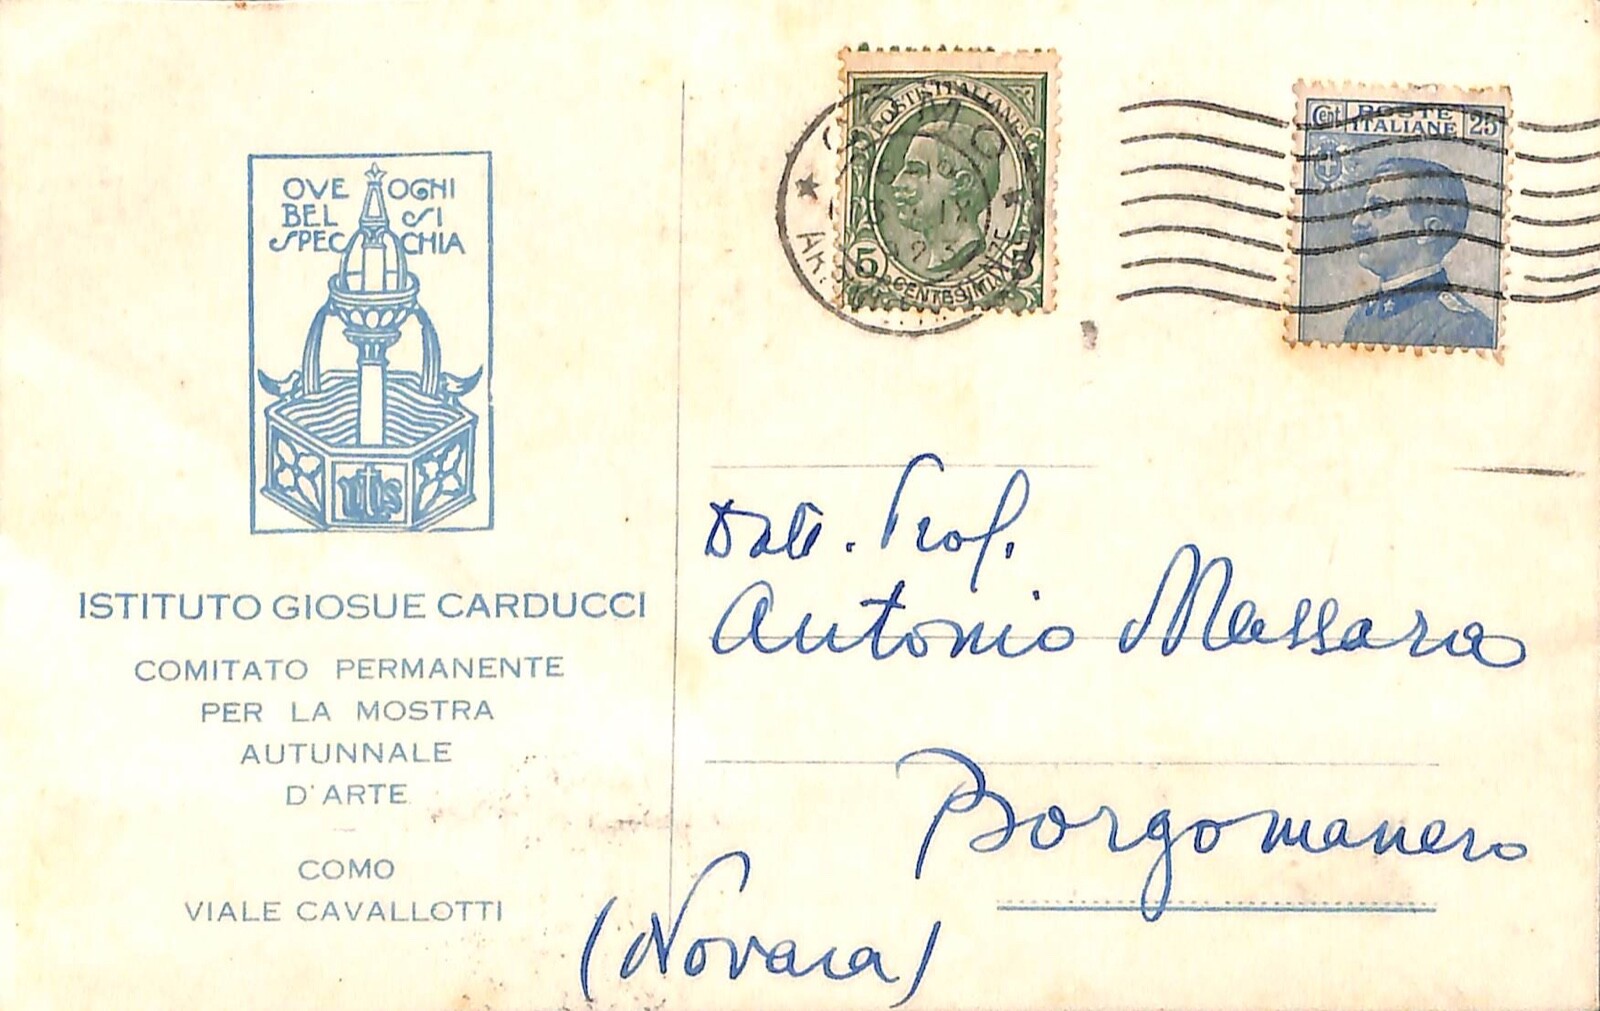 OVE OGNI
BEL SI
SPECCHIA
ISTITUTO GIOSUE CARDUCCI
COMITATO PERMANENTE
PER LA MOSTRA
AUTUNNALE
D'ARTE
COMO
VIALE CAVALLOTTI
POSTE ITALIANE
5
CENTESIMI
Cent POSTE 25
ITALIANE
Dott. Prof.
Antonio Massara
Borgomanero
(Novara)